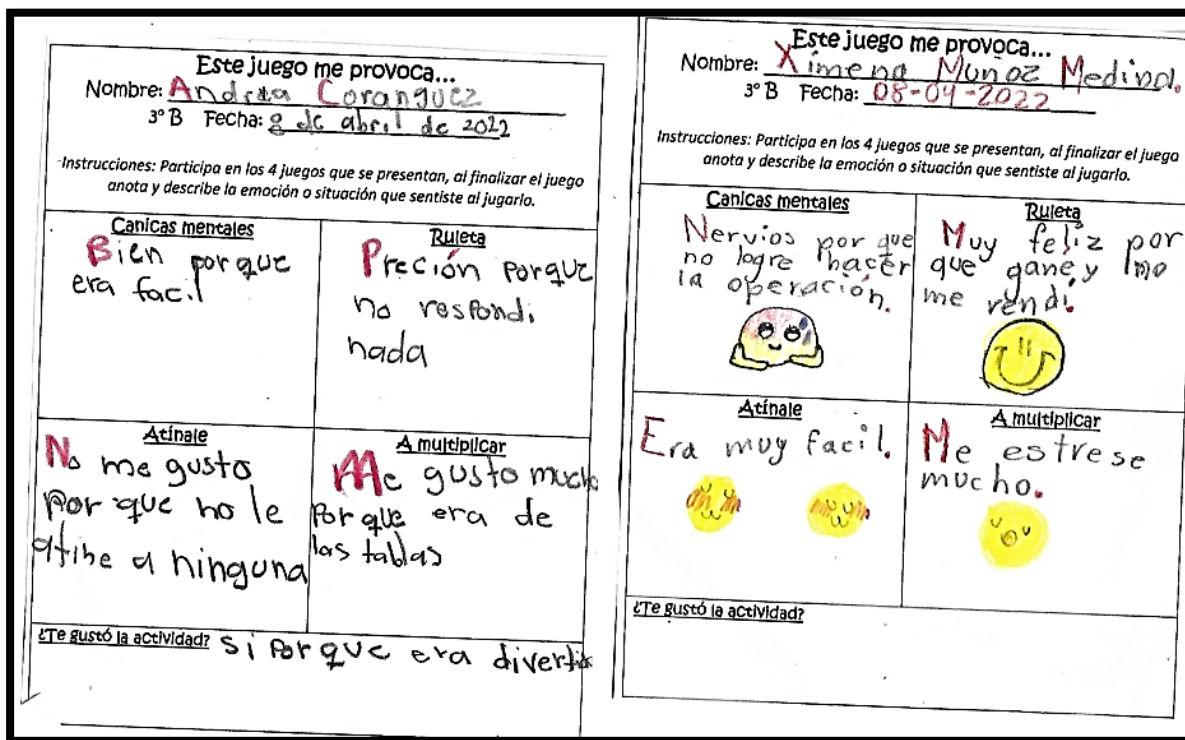 Este juego me provoca...
Nombre: Andrea Coranguez
3° B Fecha: 8 de abril de 2022
Instrucciones: Participa en los 4 juegos que se presentan, al finalizar el juego
anota y describe la emoción o situación que sentiste al jugarlo.
Canicas mentales
Bien porque
era facil
Ruleta
Preción porque
no respondi
nada
Atínale
No me gusto
Por que no le
atine a ninguna
A multiplicar
Me gusto mucho
Porque era de
las tablas
¿Te gustó la actividad? Si Porque era divertido
Este juego me provoca...
Nombre: Ximena Muñoz Medina.
3° B Fecha: 08-04-2022
Instrucciones: Participa en los 4 juegos que se presentan, al finalizar el juego
anota y describe la emoción o situación que sentiste al jugarlo.
Canicas mentales
Nervios por que
no logre hacer
la operación.
Ruleta
Muy feliz por
que gane y no
me rendí.
Atínale
Era muy facil.
A multiplicar
Me estrese
mucho.
¿Te gustó la actividad?